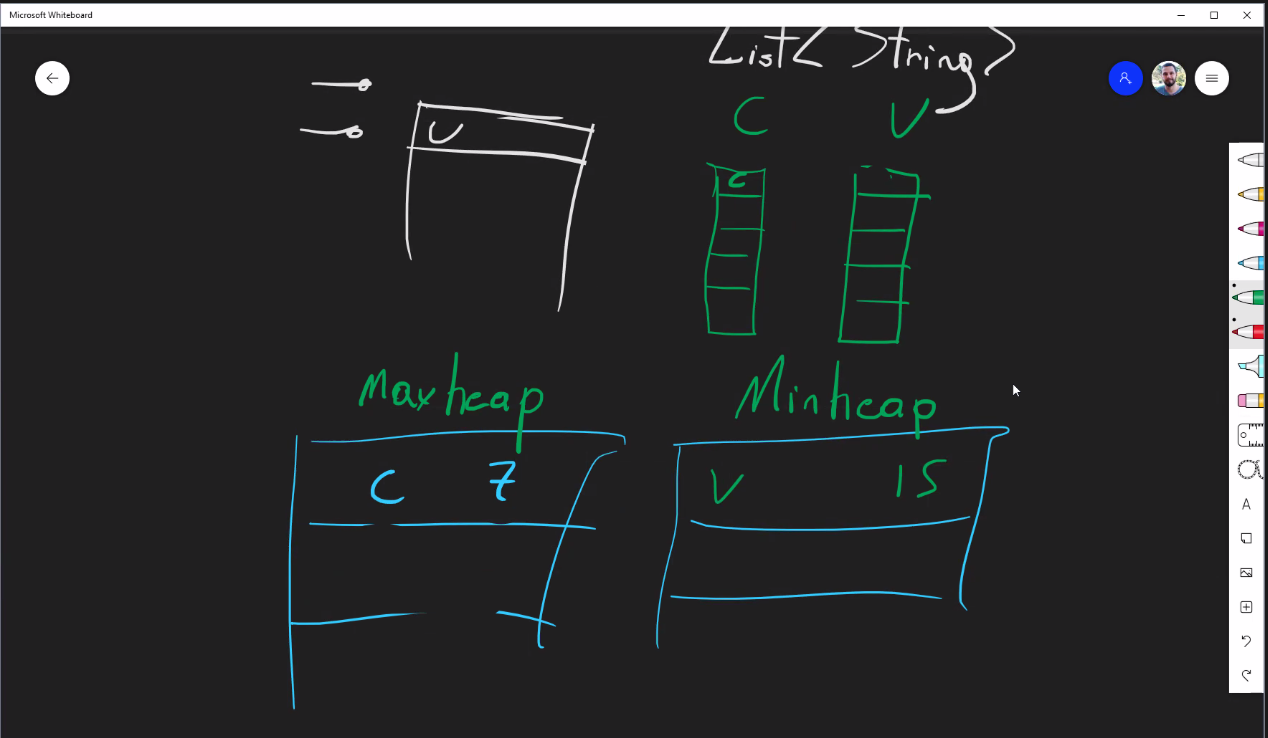 Microsoft Whiteboard
List< String>
C V
U
C
Maxheap Minheap
C 7 V 15
A